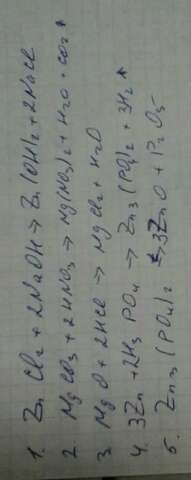 1. ZnCl₂ + 2NaOH → Zn(OH)₂ + 2NaCl
2. MgCO₃ + 2HNO₃ → Mg(NO₃)₂ + H₂O + CO₂↑
3. MgO + 2HCl → MgCl₂ + H₂O
4. 3Zn + 2H₃PO₄ → Zn₃(PO₄)₂ + 3H₂↑
5. Zn₃(PO₄)₂ → 3ZnO + P₂O₅